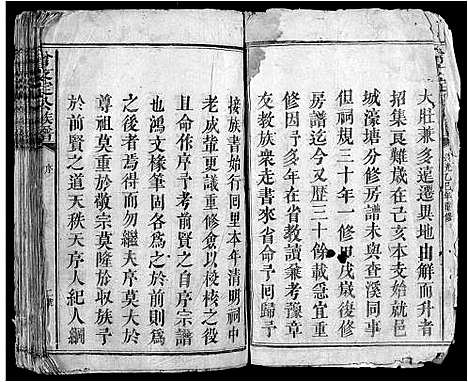 大肚兼多遠遷與地由解而升者
招集良難歲在己亥本支始就邑
城濠塘分修房譜未與查溪同事
但祠規三十年一修甲戌歲復修
房譜迄今又歷三十餘載急宜重
修因予多年在省教讀乘考豫章
友教族衆走書來省命予回歸予
接族書始行回里本年清明祠中
老成輩更議重修僉以梭梭之役
且命作序予有何才自序宗譜
也鴻文椽筆固各為之於前則
之於後者焉得而勿繼夫序莫為
尊祖莫重於敬宗莫隆於收族予
於前賢之道天秩天序人紀人綱
族譜
序